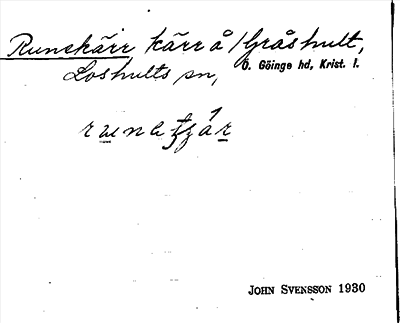 Runekärr kärr å Gråshult,
Loshults sn, Ö. Göinge hd, Krist. l.
JOHN SVENSSON 1930